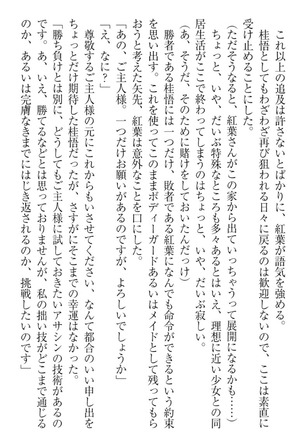 これ以上の追及は許さないとばかりに、紅葉が語気を強める。
桂悟としてもわざわざ再び狙われる日々に戻るのは歓迎しないので、ここは素直に
受け止めることにした。
（ただそうなると、紅葉さんがこの家から出ていっちゃうって展開になるかも……）
ちょっと、いや、だいぶ特殊なところも多々あるとはいえ、理想に近い少女との同
居生活がここで終わってしまうのはちょっと、いや、だいぶ寂しい。
（あ、そうだ、そのために賭けをしておいたんだっけ）
勝者である桂悟には一つだけ、敗者である紅葉になんでも命令ができるという約束
を思い出す。これを使ってこのままボディーガードあるいはメイドとして残ってもら
おうと考えた矢先、紅葉は意外なことを口にした。
「あの、ご主人様。一つだけお願いがあるのですが、よろしいでしょうか」
「え、なに？」
尊敬するご主人様の元にこれからもいさせてください、なんて都合のいい申し出を
ちょっとだけ期待した桂悟だったが、さすがにそこまでの幸運はなかった。
「勝ち負けとは別に、どうしてもご主人様に試しておきたいアサシンの技術がありま
す。あ、いえ、勝てるなどとは思っておりませんが、私の拙い技がどこまで通じる
のか、あるいは完膚なきまでにはじき返されるのか、挑戦したいのです」